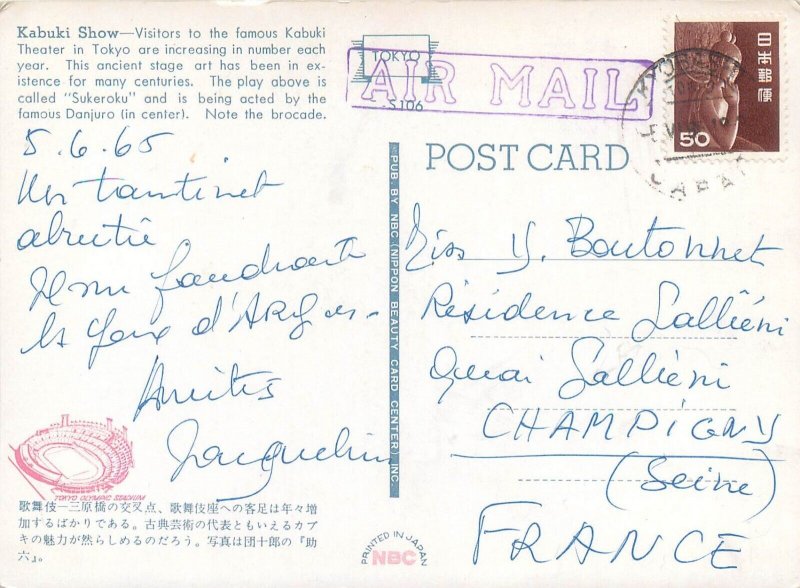 Kabuki Show—Visitors to the famous Kabuki
Theater in Tokyo are increasing in number each
year. This ancient stage art has been in ex-
istence for many centuries. The play above is
called "Sukeroku" and is being acted by the
famous Danjuro (in center). Note the brocade.
TOKYO
S106
AIR MAIL
日本郵便
50
JAPAN
5.6.65
tantinet
abrutie
faudrait
les yeux d'ARgus-
Amitiés
Jacqueline
POST CARD
PUB. BY NBC (NIPPON BEAUTY CARD CENTER) INC.
Miss Y. Boutonnet
Résidence Galliéni
Quai Galliéni
CHAMPIGNY
(Seine)
FRANCE
TOKYO OLYMPIC STADIUM
歌舞伎―三原橋の交叉点、歌舞伎座への客足は年々増
加するばかりである。古典芸術の代表ともいえるカブ
キの魅力が然らしめるのだろう。写真は団十郎の『助
六』。
PRINTED IN JAPAN
NBC